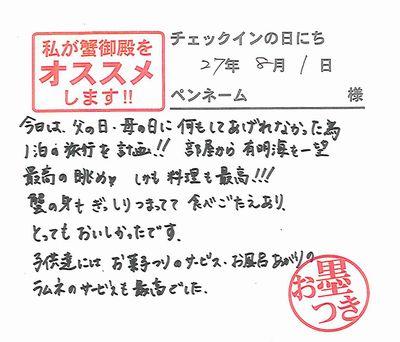 私が蟹御殿を
オススメ
します!!
チェックインの日にち
27年 8月 1日
ペンネーム 様
今日は、父の日・母の日に何もしてあげれなかった為
1泊の旅行を計画!! 部屋から有明海を一望
最高の眺め♡ しかも料理も最高!!!
蟹の身もぎっしりつまってて食べごたえあり、
とってもおいしかったです。
子供達にはお菓子つりのサービス・お風呂あがりの
ラムネのサービスも最高でした。
お墨つき